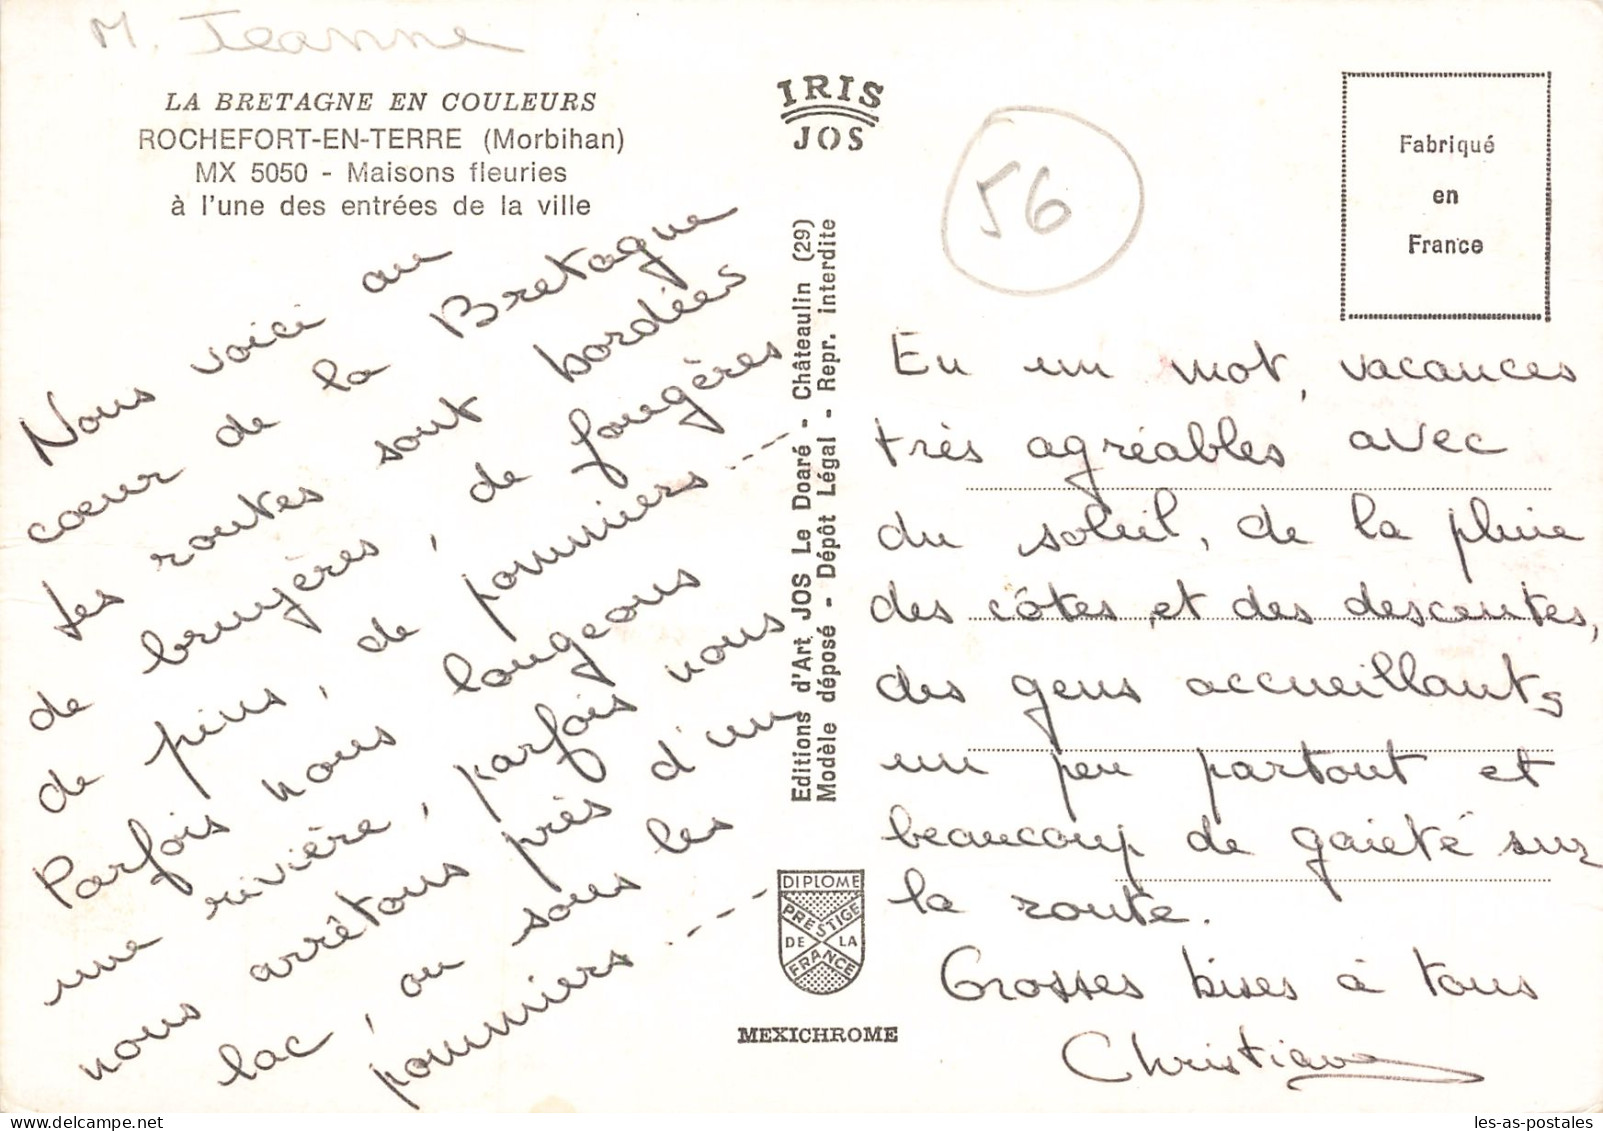 M. Jeanne
LA BRETAGNE EN COULEURS
ROCHEFORT-EN-TERRE (Morbihan)
MX 5050 - Maisons fleuries
à l'une des entrées de la ville
Nous voici au
cœur de la Bretagne
Les routes sont bordées
de bruyères, de fougères
de pins, de pommiers ----
Parfois nous longeons
une rivière, parfois nous
nous arrêtons près d'un
lac, ou sous les
pommiers ----
IRIS
JOS
Editions d'Art JOS Le Doaré - Châteaulin (29)
Modèle déposé - Dépôt Légal - Repr. interdite
DIPLOME
PRESTIGE
DE LA
FRANCE
MEXICHROME
56
Fabriqué
en
France
En un mot, vacances
très agréables avec
du soleil, de la pluie
des côtes, et des descentes,
des gens accueillants
un peu partout et
beaucoup de gaieté sur
la route.
Grosses bises à tous
Christiane
les-as-postales